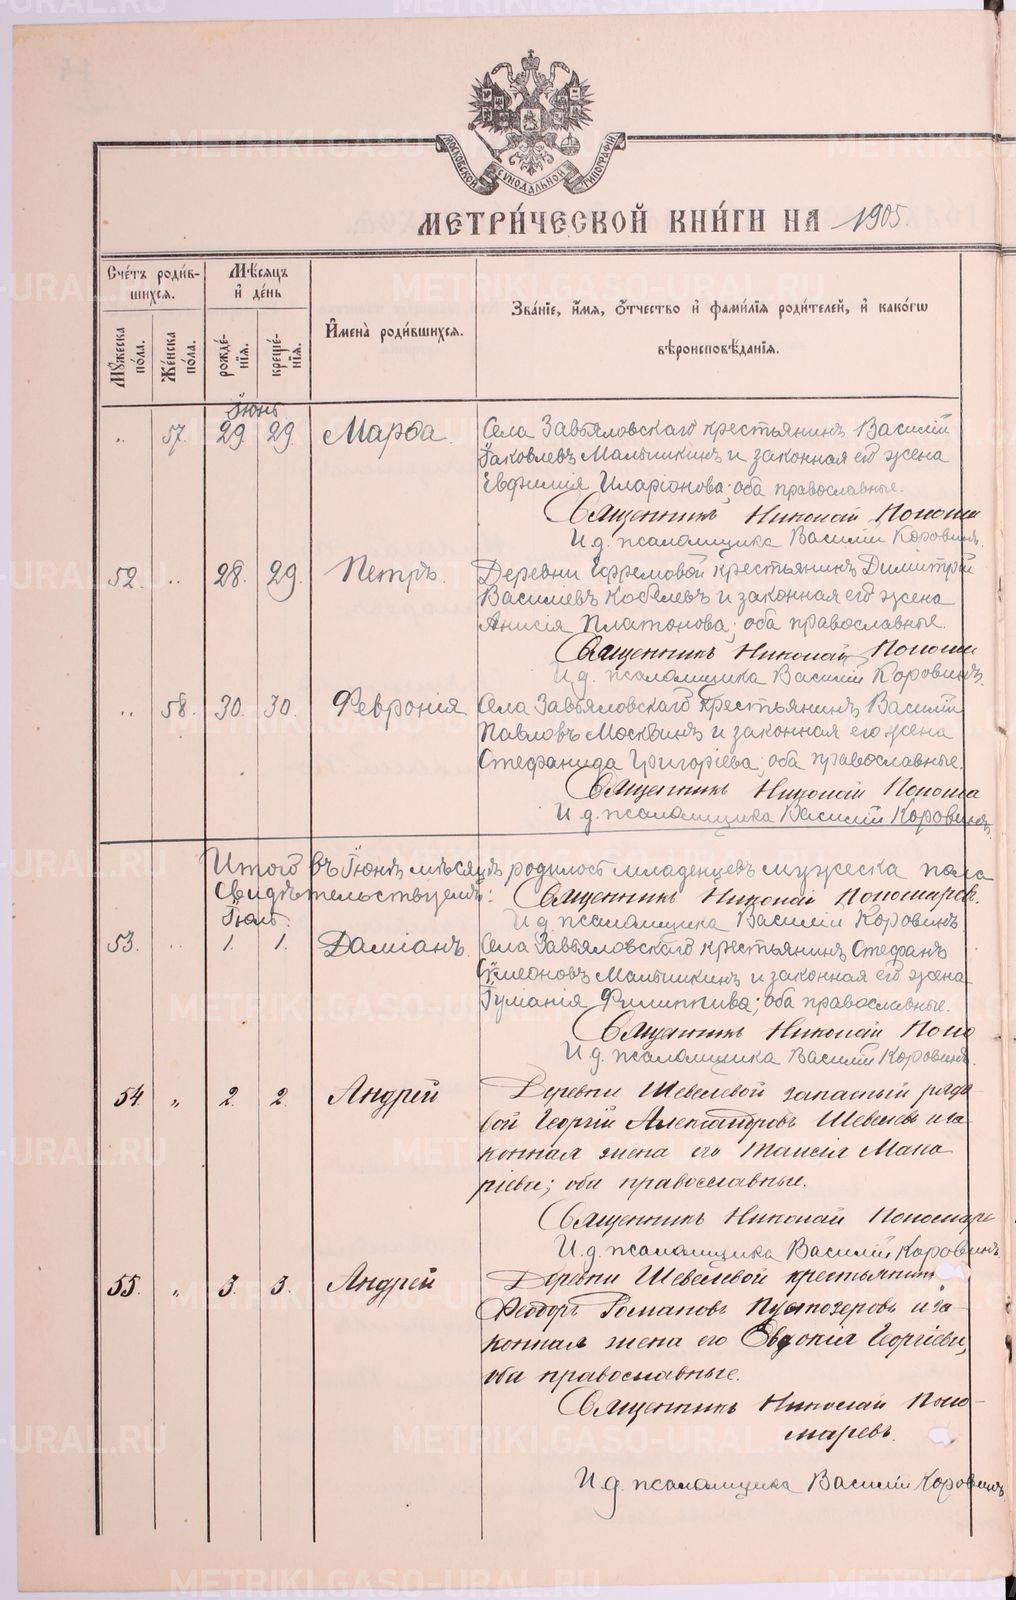 МОСКОВСКОЙ СУНОДАЛЬНОЙ ТИПОГРАФІИ
МЕТРИ́ЧЕСКОЙ КНИ́ГИ НА 1905.
Счéтъ роди́вшихся.
Мꙋ́жеска пóла.
Жéнска пóла.
Мѣ́сяцъ и́ дéнь
рождéнїѧ.
крещéнїѧ.
И́мена̀ роди́вшихся.
Звáнїе, и́мѧ, ѻ́тчество и́ фами́лїѧ роди́телей, и́ какóгѡ
вѣроисповѣ́данїѧ.
Іюнь
„ 57. 29 29. Марѳа. Села Завьяловскаго крестьянинъ Василій
Іаковлевъ Малышкинъ и законная его жена
Евфимія Иларіонова; оба православные.
Священникъ Николай Пономa
И.д. псаломщика Василій Коровинъ.
52. „ 28. 29. Петръ. Деревни Ефремовой крестьянинъ Димитрій
Василіевъ Кобелевъ и законная его жена
Анисія Платонова; оба православные.
Священникъ Николай Пономa
И.д. псаломщика Василій Коровинъ.
„ 58. 30. 30. Февронія Села Завьяловскаго крестьянинъ Василій
Павловъ Москвинъ и законная его жена
Стефанида Григоріева; оба православные.
Священникъ Николай Понома
И.д. псаломщика Василій Коровинъ.
Итого въ Іюнѣ мѣсяцѣ родилось младенцевъ мужеска пола
Свидѣтельствуемъ: Священникъ Николай Пономарев.
И.д. псаломщика Василій Коровинъ
Іюль.
53. „ 1. 1. Даміанъ. Села Завьяловскаго крестьянинъ Стефанъ
Сімеоновъ Малышкинъ и законная его жена
Іуліанія Филиппова; оба православные.
Священникъ Николай Поно
И.д. псаломщика Василій Коровинъ.
54. „ 2. 2. Андрей Деревни Шевелевой запасный рядо-
вой Георгій Александровъ Шевелев и за-
конная жена его Таисія Мака
ріева; оба православные.
Священникъ Николай Пономаре
И.д. псаломщика Василій Коровинъ
55. „ 3. 3. Андрей Деревни Шевелевой крестьянинъ
Феодоръ Романовъ Пустозеровъ и за-
конная жена его Евдокія Георгіева,
оба православные.
Священникъ Николай Поно-
маревъ.
И.д. псаломщика Василій Коровинъ
METRIKI.GASO-URAL.RU